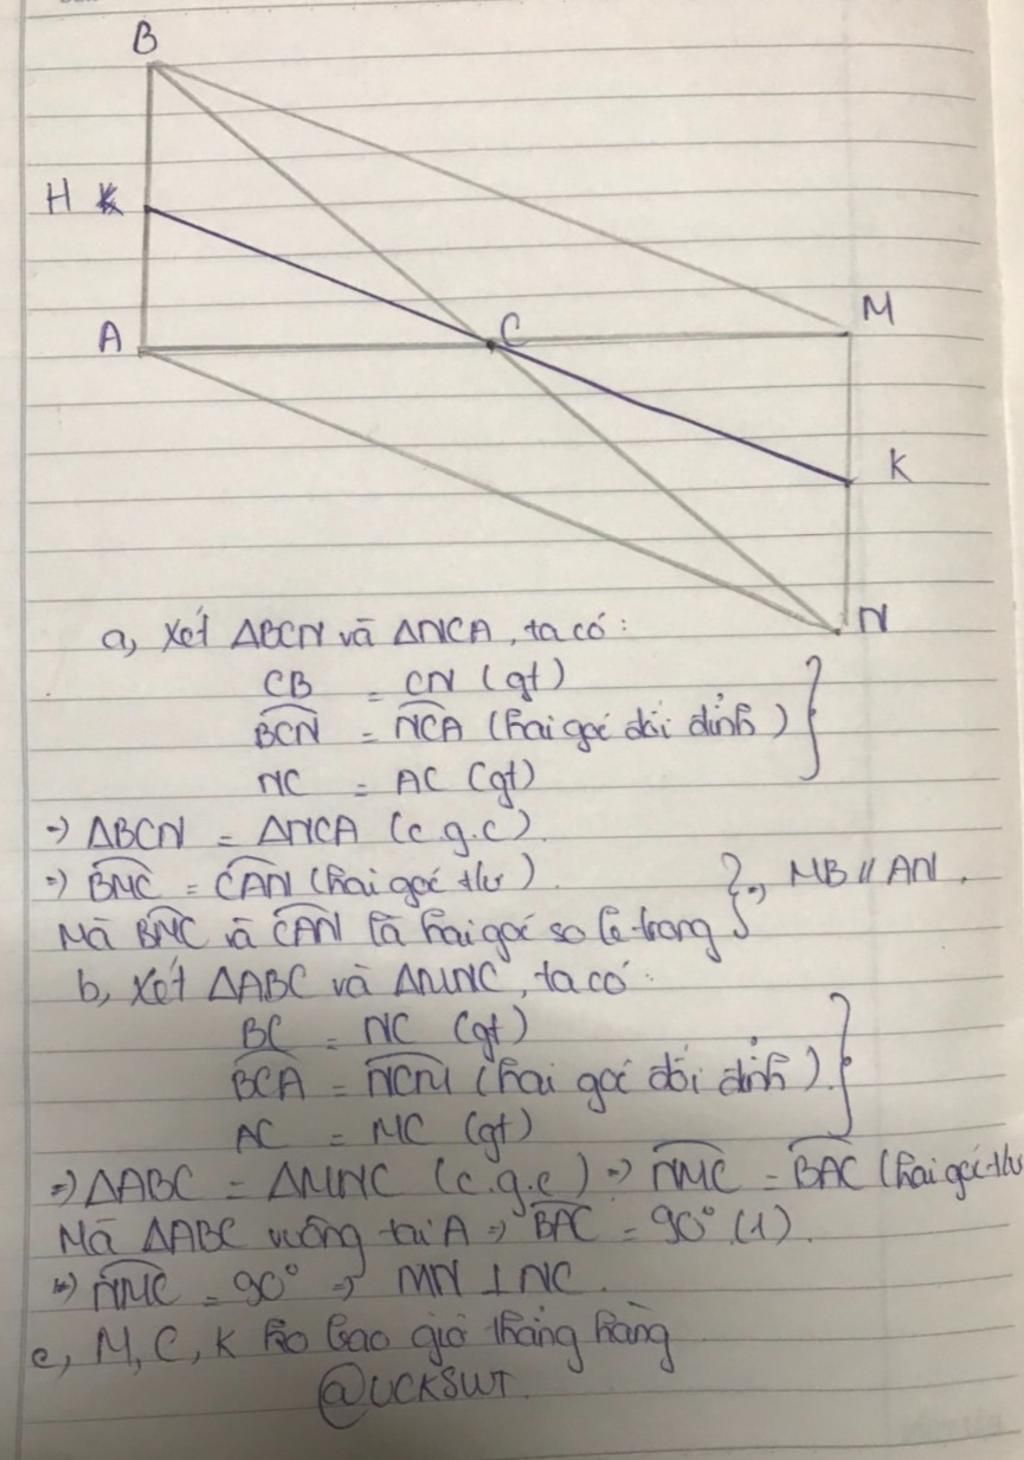 B
H
A
C
M
K
N
a, Xét ΔBCM và ΔNCA, ta có:
CB = CN (gt)
BCM = NCA (hai góc đối đỉnh)
MC = AC (gt)
=> ΔBCM = ΔNCA (c.g.c).
=> BMC = CAN (hai góc tư)
Mà BMC và CAN là hai góc so le trong } => MB // AN.
b, Xét ΔABC và ΔMNC, ta có:
BC = NC (gt)
BCA = NCM (hai góc đối đỉnh).
AC = MC (gt)
=> ΔABC = ΔMNC (c.g.c) => NMC = BAC (hai góc tư
Mà ΔABC vuông tại A => BAC = 90° (1).
=> NMC = 90° => MN ⊥ MC.
c, M, C, K ko bao giờ thẳng hàng
@UCKSWT.